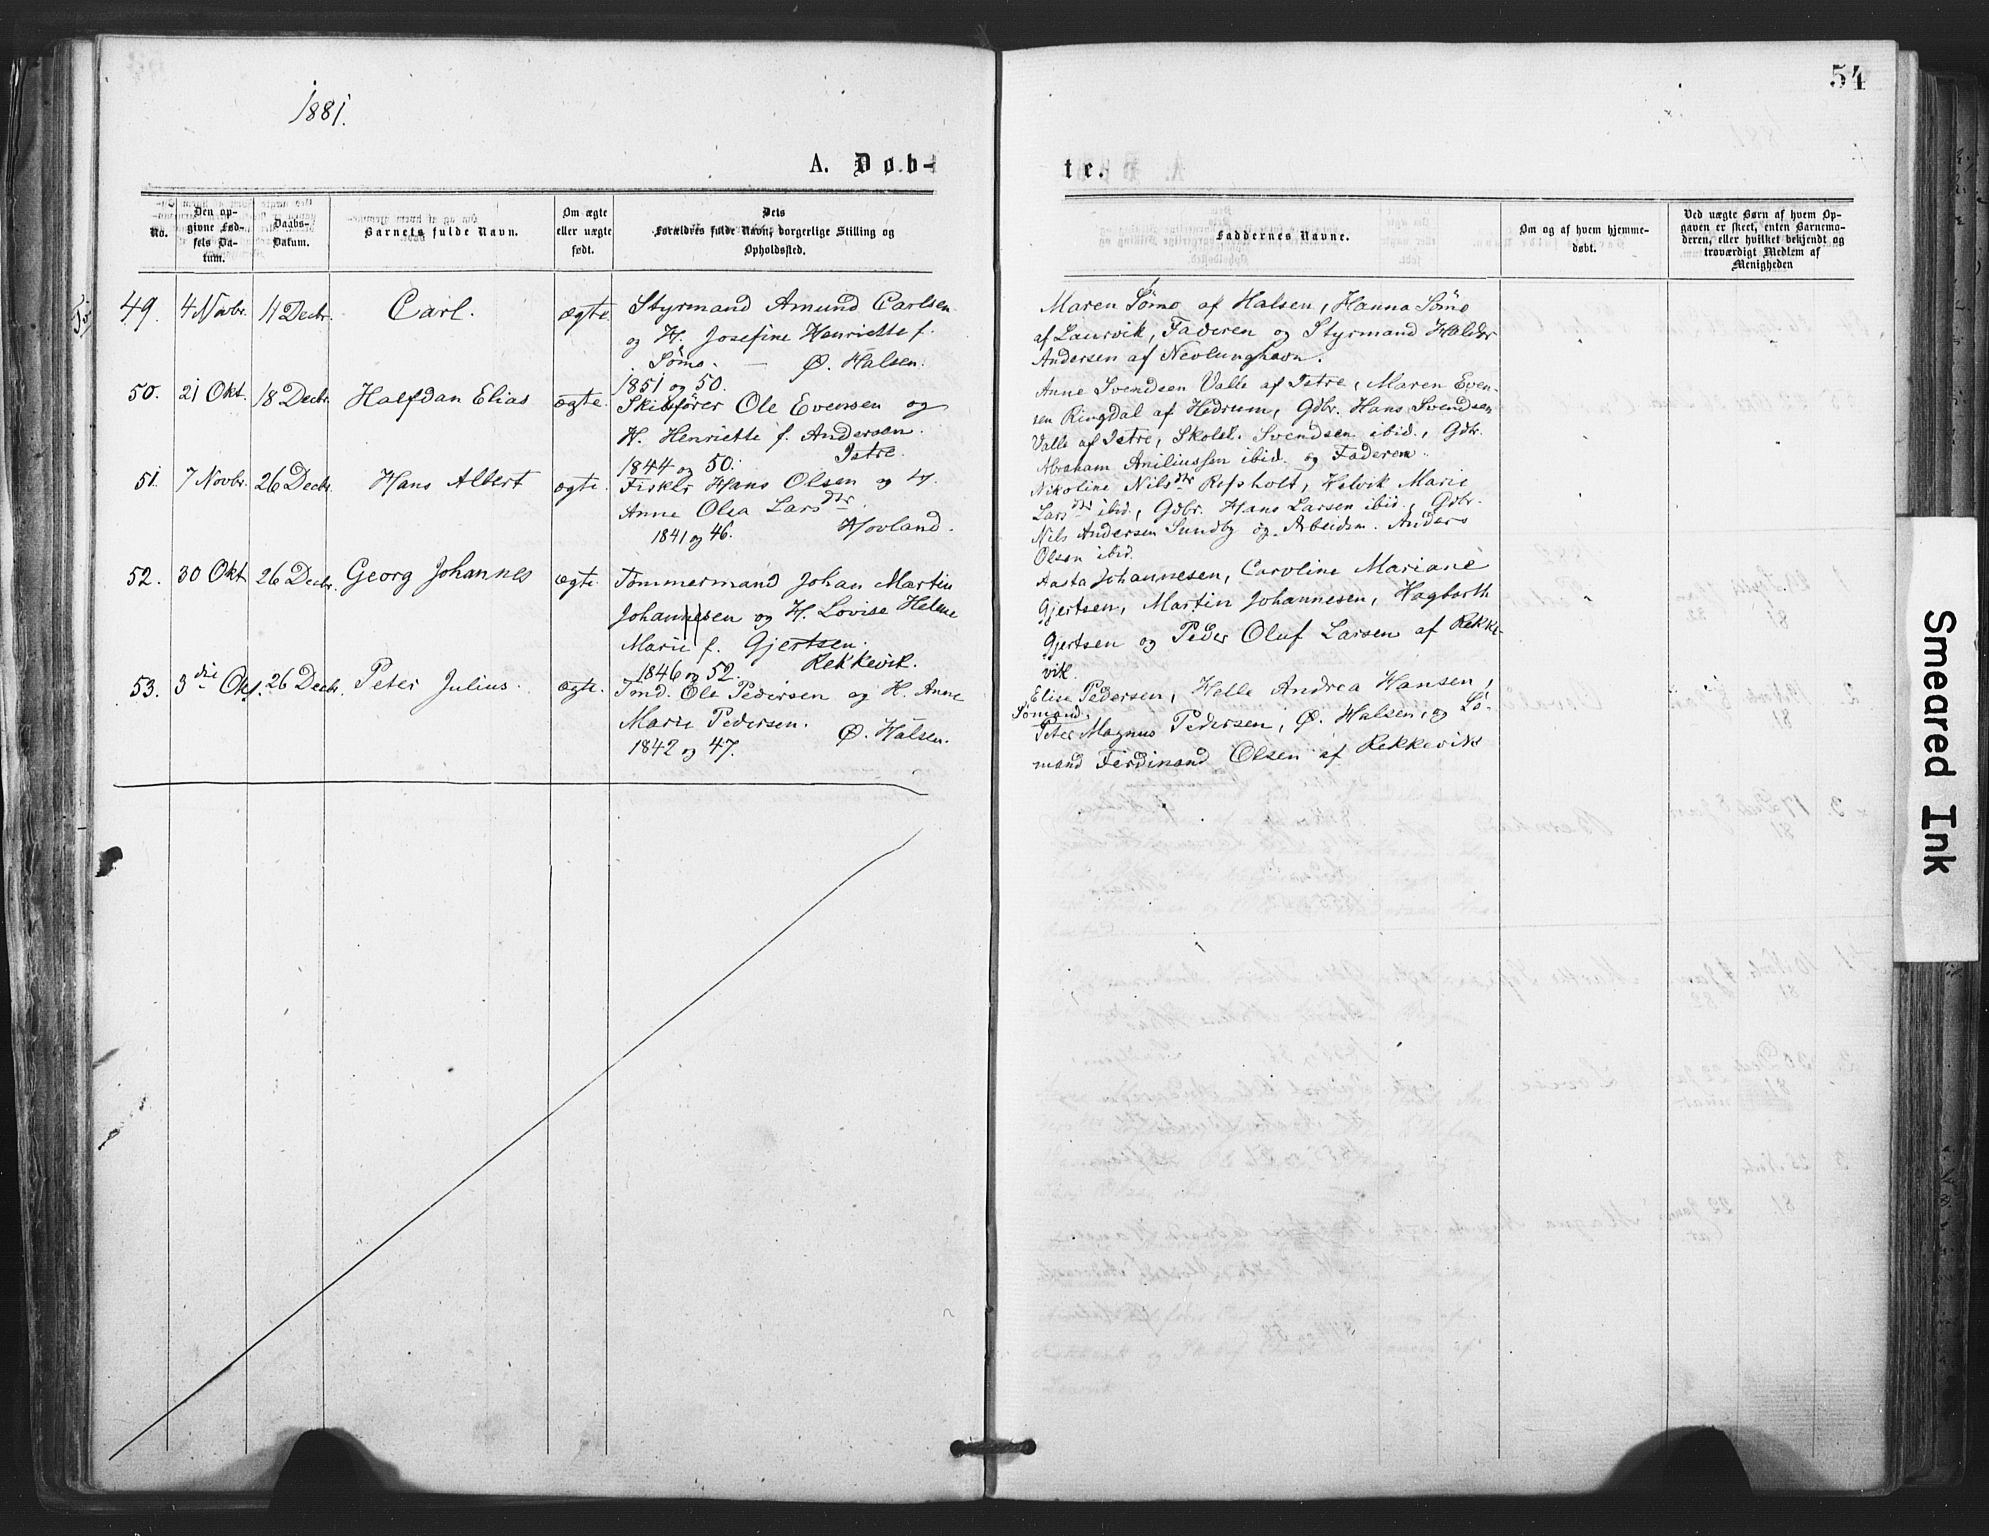 54
1881.
A. Døb-
te.
No.
Den op-
givne Fød-
sels Da-
tum.
Daabs-
Datum.
Barnets fulde Navn.
Om ægte
eller uægte
født.
Dets
Forældres fulde Navn, borgerlige Stilling og
Opholdssted.
Faddernes Navne.
Om og af hvem hjemme-
døbt.
Ved uægte Børn af hvem Op-
gaven er skeet, enten Barnemo-
deren, eller hvilket bekjendt og
troværdigt Medlem af
Menigheden
49. 4 Novbr. 11 Decbr. Carl. ægte.
Styrmand Amund Carlsen
og H. Josefine Henriette f.
Sømo. — Ø. Halsen.
1851 og 50.
Maren Sømo af Halsen, Hanna Sømo
af Laurvik, Faderen og Styrmand Halvor
Andersen af Nevlunghavn.
50. 21 Okt. 18 Decbr. Halfdan Elias ægte.
Skibsfører Ole Evensen og
H. Henriette f. Andersen.
1844 og 50. Istre.
Anne Svendsen Valle af Istre, Maren Even-
sen Ringdal af Hedrum, Gdbr. Hans Svendsen
Valle af Istre, Skolel. Svendsen ibid., Gdbr.
Abraham Aniliussen ibid. og Faderen.
51. 7 Novbr. 26 Decbr. Hans Albert ægte.
Hans Olsen og H.
Anne Olea Larsdtr.
1841 og 46. Hovland.
Nikoline Nilsdtr Refsholt, Helvik Marie
Larsdtr ibid., Gdbr. Hans Larsen ibid., Gdbr.
Nils Andersen Sundby og Arbeidsm. Anders
Olsen ibid.
52. 30 Okt 26 Decbr. Georg Johannes ægte.
Tømmermand Johan Martin
Johannesen og H. Lovise Helene
Marie f. Gjertsen.
1846 og 52. Rekkevik.
Aasta Johannesen, Caroline Mariane
Gjertsen, Martin Johannesen, Hagbarth
Gjertsen og Peder Oluf Larsen af Rekke-
vik.
53. 3die Okt. 26 Decbr. Peter Julius. ægte.
Tmd. Ole Pedersen og H. Anne
Marie Pedersen.
1842 og 47. Ø. Halsen.
Elise Pedersen, Helle Andrea Hansen,
Sømand
Peter Magnus Pedersen, Ø. Halsen, og Sø-
mand Ferdinand Olsen af Rekkevik
Smeared Ink